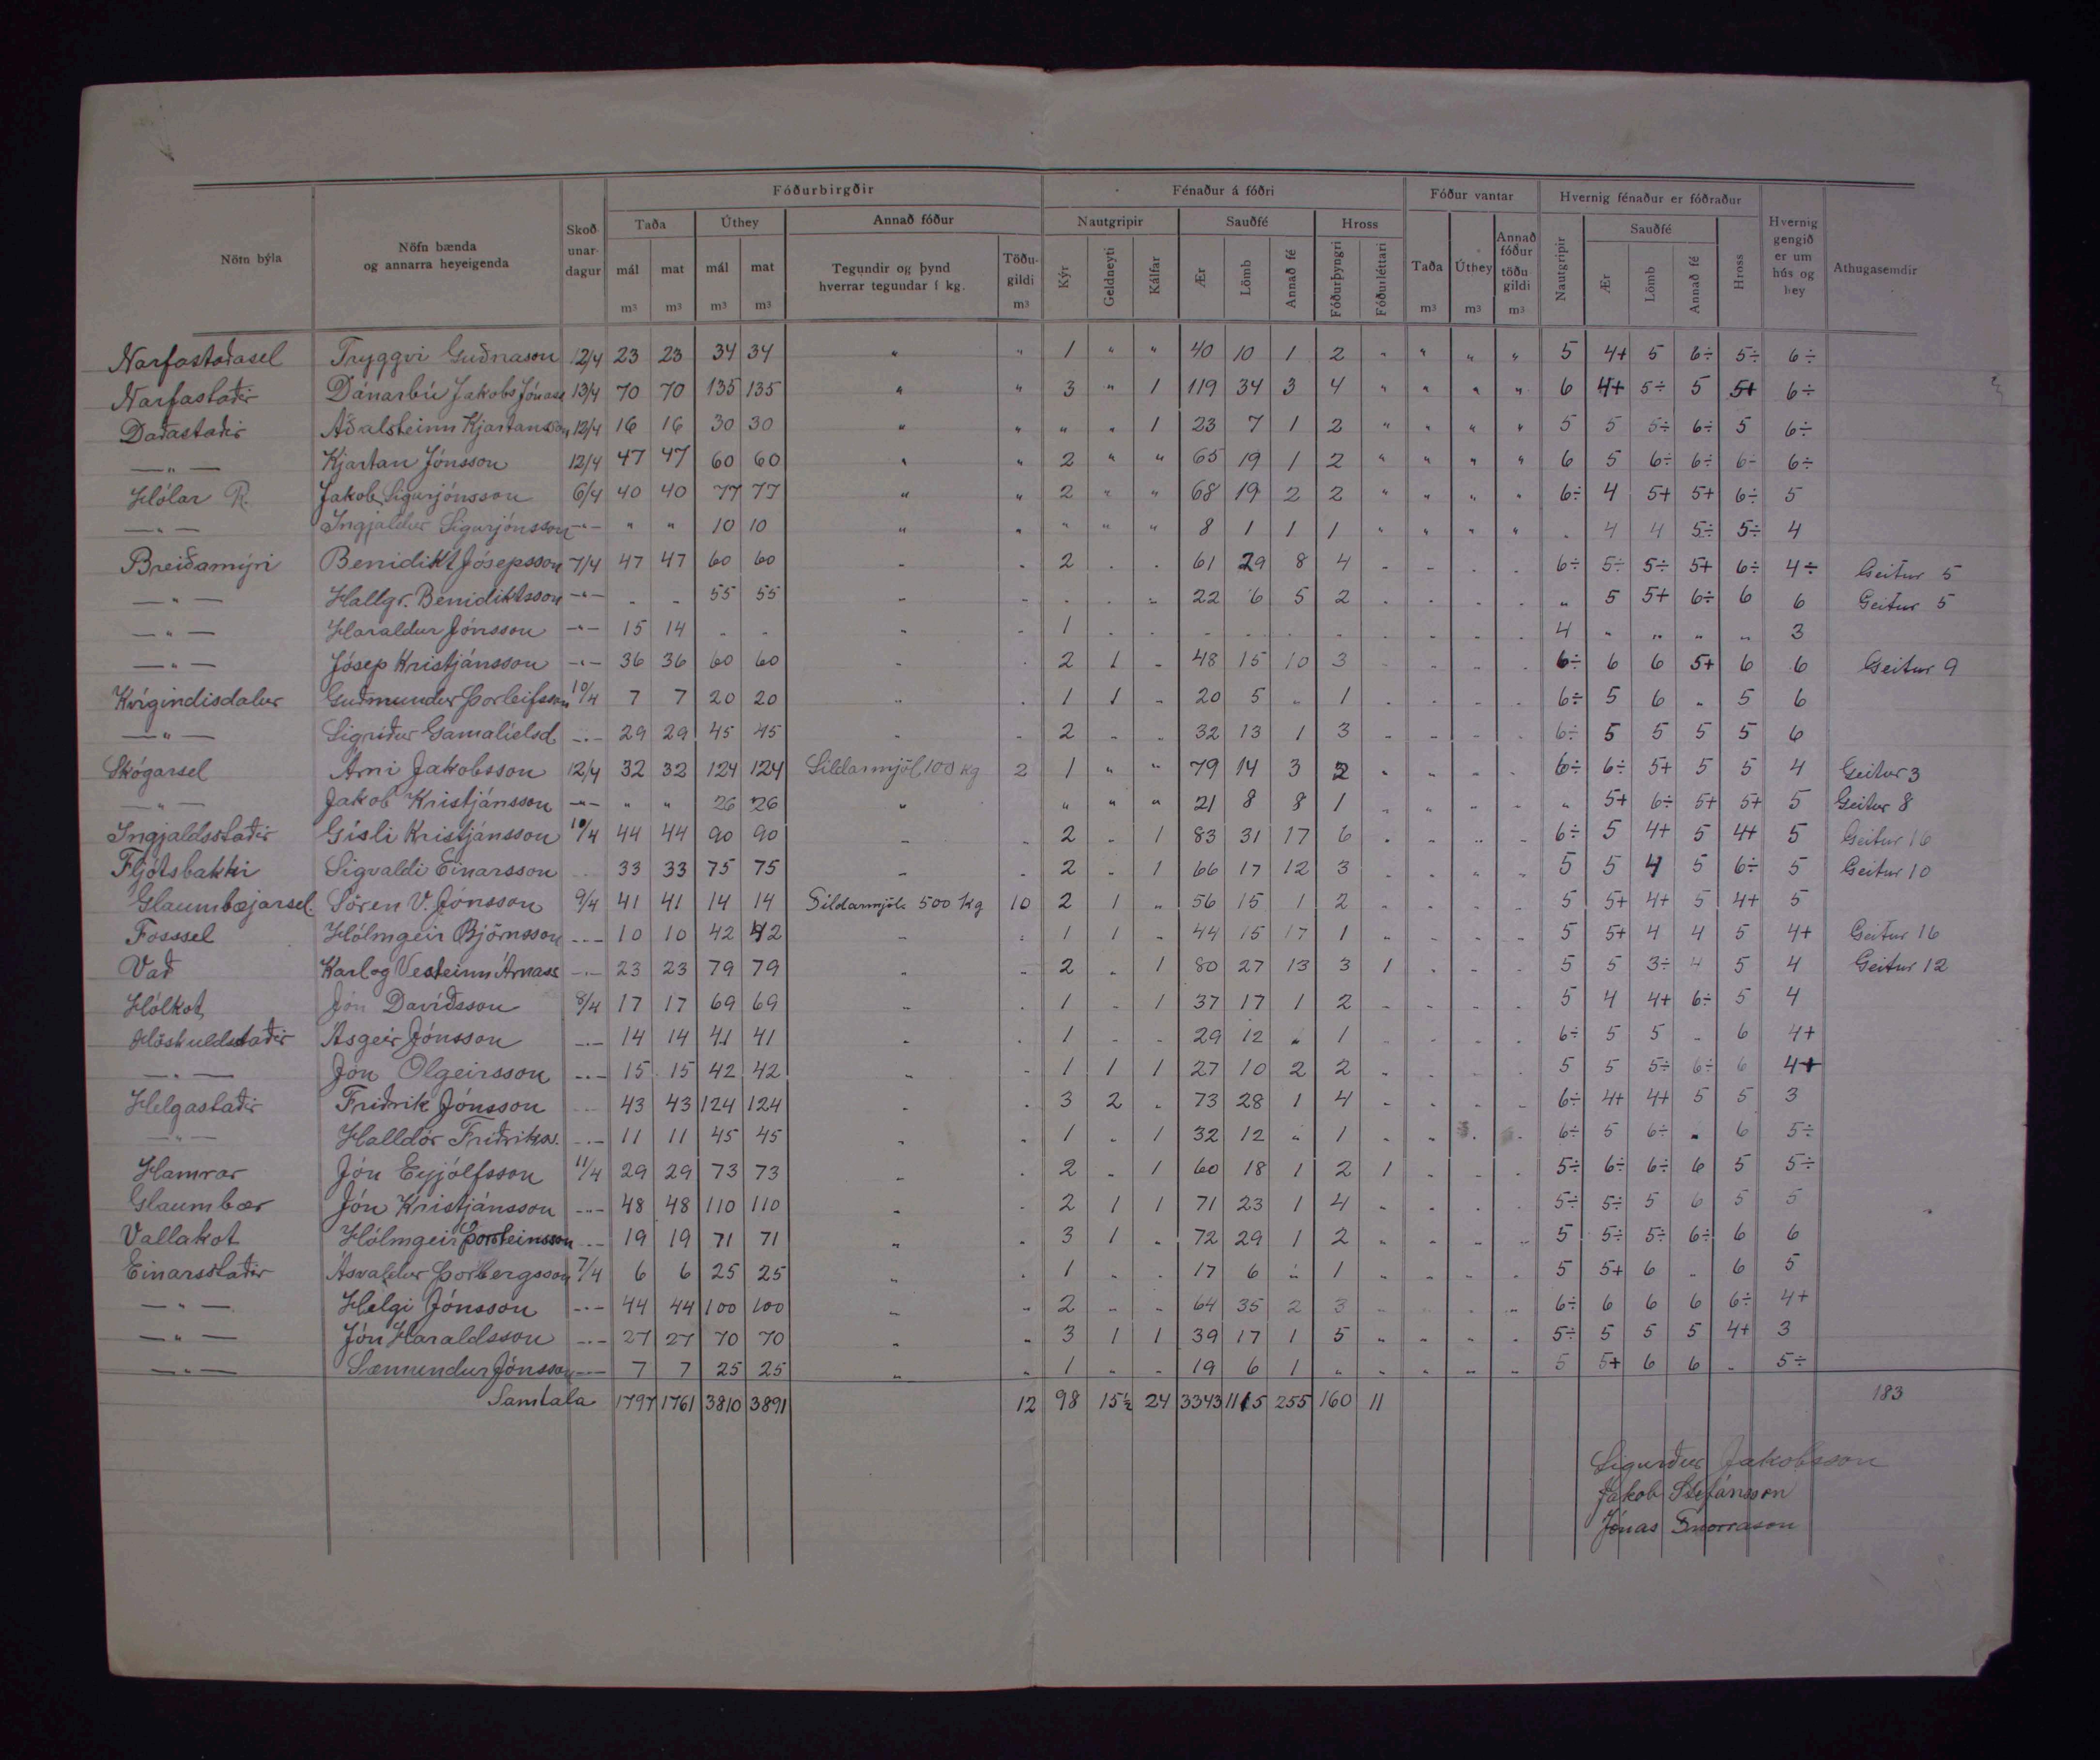 Nöfn býla | Nöfn bænda og annarra heyeigenda | Skoðunardagur | Fóðurbirgðir | Fénaður á fóðri | Fóður vantar | Hvernig fénaður er fóðraður | Hvernig gengið er um hús og hey | Athugasemdir
Taða | Úthey | Annað fóður | Nautgripir | Sauðfé | Hross | Taða m³ | Úthey m³ | Annað fóður töðugildi m³ | Nautgripir | Sauðfé | Hross
mál m³ | mat m³ | mál m³ | mat m³ | Tegundir og þynd hverrar tegundar í kg. | Töðugildi m³ | Kýr | Geldneyti | Kálfar | Ær | Lömb | Annað fé | Fóðurþyngri | Fóðurléttari | Ær | Lömb | Annað fé
Narfastaðasel | Tryggvi Guðnason | 12/4 | 23 | 23 | 34 | 34 | " | " | 1 | " | " | 40 | 10 | 1 | 2 | " | " | " | " | 5 | 4+ | 5 | 6÷ | 5÷ | 6÷
Narfastaðir | Dánarbú Jakobs Jónass | 13/4 | 70 | 70 | 135 | 135 | " | " | 3 | " | 1 | 119 | 34 | 3 | 4 | " | " | " | " | 6 | 4+ | 5÷ | 5 | 5+ | 6÷
Daðastaðir | Aðalsteinn Kjartansson | 12/4 | 16 | 16 | 30 | 30 | " | " | " | " | 1 | 23 | 7 | 1 | 2 | " | " | " | " | 5 | 5 | 5÷ | 6÷ | 5 | 6÷
—"— | Kjartan Jónsson | 12/4 | 47 | 47 | 60 | 60 | " | " | 2 | " | " | 65 | 19 | 1 | 2 | " | " | " | " | 6 | 5 | 6÷ | 6÷ | 6÷ | 6÷
Hólar R. | Jakob Sigurjónsson | 6/4 | 40 | 40 | 77 | 77 | " | " | 2 | " | " | 68 | 19 | 2 | 2 | " | " | " | " | 6÷ | 4 | 5+ | 5+ | 6÷ | 5
—"— | Ingjaldur Sigurjónsson | -"- | " | " | 10 | 10 | " | " | " | " | " | 8 | 1 | 1 | 1 | " | " | " | " | " | 4 | 4 | 5÷ | 5÷ | 4
Breiðamýri | Benidikt Jósepsson | 7/4 | 47 | 47 | 60 | 60 | " | " | 2 | " | " | 61 | 29 | 8 | 4 | " | " | " | " | 6÷ | 5÷ | 5÷ | 5+ | 6÷ | 4÷ | Geitur 5
—"— | Hallgr. Benidiktsson | -"- | " | " | 55 | 55 | " | " | " | " | " | 22 | 6 | 5 | 2 | " | " | " | " | " | 5 | 5+ | 6÷ | 6 | 6 | Geitur 5
—"— | Haraldur Jónsson | -"- | 15 | 14 | " | " | " | " | 1 | " | " | " | " | " | " | " | " | " | " | 4 | " | " | " | " | 3
—"— | Jósep Kristjánsson | -"- | 36 | 36 | 60 | 60 | " | " | 2 | 1 | " | 48 | 15 | 10 | 3 | " | " | " | " | 6÷ | 6 | 6 | 5+ | 6 | 6 | Geitur 9
Kvígindisdalur | Guðmundur Þorleifsson | 10/4 | 7 | 7 | 20 | 20 | " | " | 1 | 1 | " | 20 | 5 | " | 1 | " | " | " | " | 6÷ | 5 | 6 | " | 5 | 6
—"— | Sigríður Gamalíelsd. | -"- | 29 | 29 | 45 | 45 | " | " | 2 | " | " | 32 | 13 | 1 | 3 | " | " | " | " | 6÷ | 5 | 5 | 5 | 5 | 6
Skógarsel | Árni Jakobsson | 12/4 | 32 | 32 | 124 | 124 | Síldarmjöl 100 kg | 2 | 1 | " | " | 79 | 14 | 3 | 2 | " | " | " | " | 6÷ | 6÷ | 5+ | 5 | 5 | 4 | Geitur 3
—"— | Jakob Kristjánsson | -"- | " | " | 26 | 26 | " | | " | " | " | 21 | 8 | 8 | 1 | " | " | " | " | " | 5+ | 6÷ | 5+ | 5+ | 5 | Geitur 8
Ingjaldsstaðir | Gísli Kristjánsson | 10/4 | 44 | 44 | 90 | 90 | " | " | 2 | " | 1 | 83 | 31 | 17 | 6 | " | " | " | " | 6÷ | 5 | 4+ | 5 | 4+ | 5 | Geitur 16
Fljótsbakki | Sigvaldi Einarsson | " | 33 | 33 | 75 | 75 | " | " | 2 | " | 1 | 66 | 17 | 12 | 3 | " | " | " | " | 5 | 5 | 4 | 5 | 6÷ | 5 | Geitur 10
Glaumbæjarsel. | Sören V. Jónsson | 9/4 | 41 | 41 | 14 | 14 | Síldarmjöl. 500 kg | 10 | 2 | 1 | " | 56 | 15 | 1 | 2 | " | " | " | " | 5 | 5+ | 4+ | 5 | 4+ | 5
Fosssel | Hólmgeir Björnsson | -"- | 10 | 10 | 42 | 42 | " | " | 1 | 1 | " | 44 | 15 | 17 | 1 | " | " | " | " | 5 | 5+ | 4 | 4 | 5 | 4+ | Geitur 16
Vað | Karl og Vesteinn Árnass | -"- | 23 | 23 | 79 | 79 | " | " | 2 | " | 1 | 80 | 27 | 13 | 3 | 1 | " | " | " | 5 | 5 | 3÷ | 4 | 5 | 4 | Geitur 12
Hólkot | Jón Davíðsson | 8/4 | 17 | 17 | 69 | 69 | " | " | 1 | " | 1 | 37 | 17 | 1 | 2 | " | " | " | " | 5 | 4 | 4+ | 6÷ | 5 | 4
Höskuldstaðir | Ásgeir Jónsson | -"- | 14 | 14 | 41 | 41 | " | " | 1 | " | " | 29 | 12 | " | 1 | " | " | " | " | 6÷ | 5 | 5 | " | 6 | 4+
—"— | Jón Olgeirsson | -"- | 15 | 15 | 42 | 42 | " | " | 1 | 1 | 1 | 27 | 10 | 2 | 2 | " | " | " | " | 5 | 5 | 5÷ | 6÷ | 6 | 4+
Helgastaðir | Friðrik Jónsson | -"- | 43 | 43 | 124 | 124 | " | " | 3 | 2 | " | 73 | 28 | 1 | 4 | " | " | " | " | 6÷ | 4+ | 4+ | 5 | 5 | 3
—"— | Halldór Friðrikss. | -"- | 11 | 11 | 45 | 45 | " | " | 1 | " | 1 | 32 | 12 | " | 1 | " | " | " | " | 6÷ | 5 | 6÷ | " | 6 | 5÷
Hamrar | Jón Eyjólfsson | 11/4 | 29 | 29 | 73 | 73 | " | " | 2 | " | 1 | 60 | 18 | 1 | 2 | 1 | " | " | " | 5÷ | 6÷ | 6÷ | 6 | 5 | 5÷
Glaumbær | Jón Kristjánsson | -"- | 48 | 48 | 110 | 110 | " | " | 2 | 1 | 1 | 71 | 23 | 1 | 4 | " | " | " | " | 5÷ | 5÷ | 5 | 6 | 5 | 5
Vallakot | Hólmgeir Þorsteinsson | -"- | 19 | 19 | 71 | 71 | " | " | 3 | 1 | " | 72 | 29 | 1 | 2 | " | " | " | " | 5 | 5÷ | 5÷ | 6÷ | 6 | 6
Einarsstaðir | Ásvaldur Þorbergsson | 7/4 | 6 | 6 | 25 | 25 | " | " | 1 | " | " | 17 | 6 | " | 1 | " | " | " | " | 5 | 5+ | 6 | " | 6 | 5
—"— | Helgi Jónsson | -"- | 44 | 44 | 100 | 100 | " | " | 2 | " | " | 64 | 35 | 2 | 3 | " | " | " | " | 6÷ | 6 | 6 | 6 | 6÷ | 4+
—"— | Jón Haraldsson | -"- | 27 | 27 | 70 | 70 | " | " | 3 | 1 | 1 | 39 | 17 | 1 | 5 | " | " | " | " | 5÷ | 5 | 5 | 5 | 4+ | 3
—"— | Sæmundur Jónsson | -"- | 7 | 7 | 25 | 25 | " | " | 1 | " | " | 19 | 6 | 1 | " | " | " | " | " | 5 | 5+ | 6 | 6 | " | 5÷
Samtala | 1797 | 1761 | 3810 | 3891 | 12 | 98 | 15½ | 24 | 3343 | 1115 | 255 | 160 | 11 | 183
Sigurður Jakobsson
Jakob Stefánsson
Jónas Snorrason